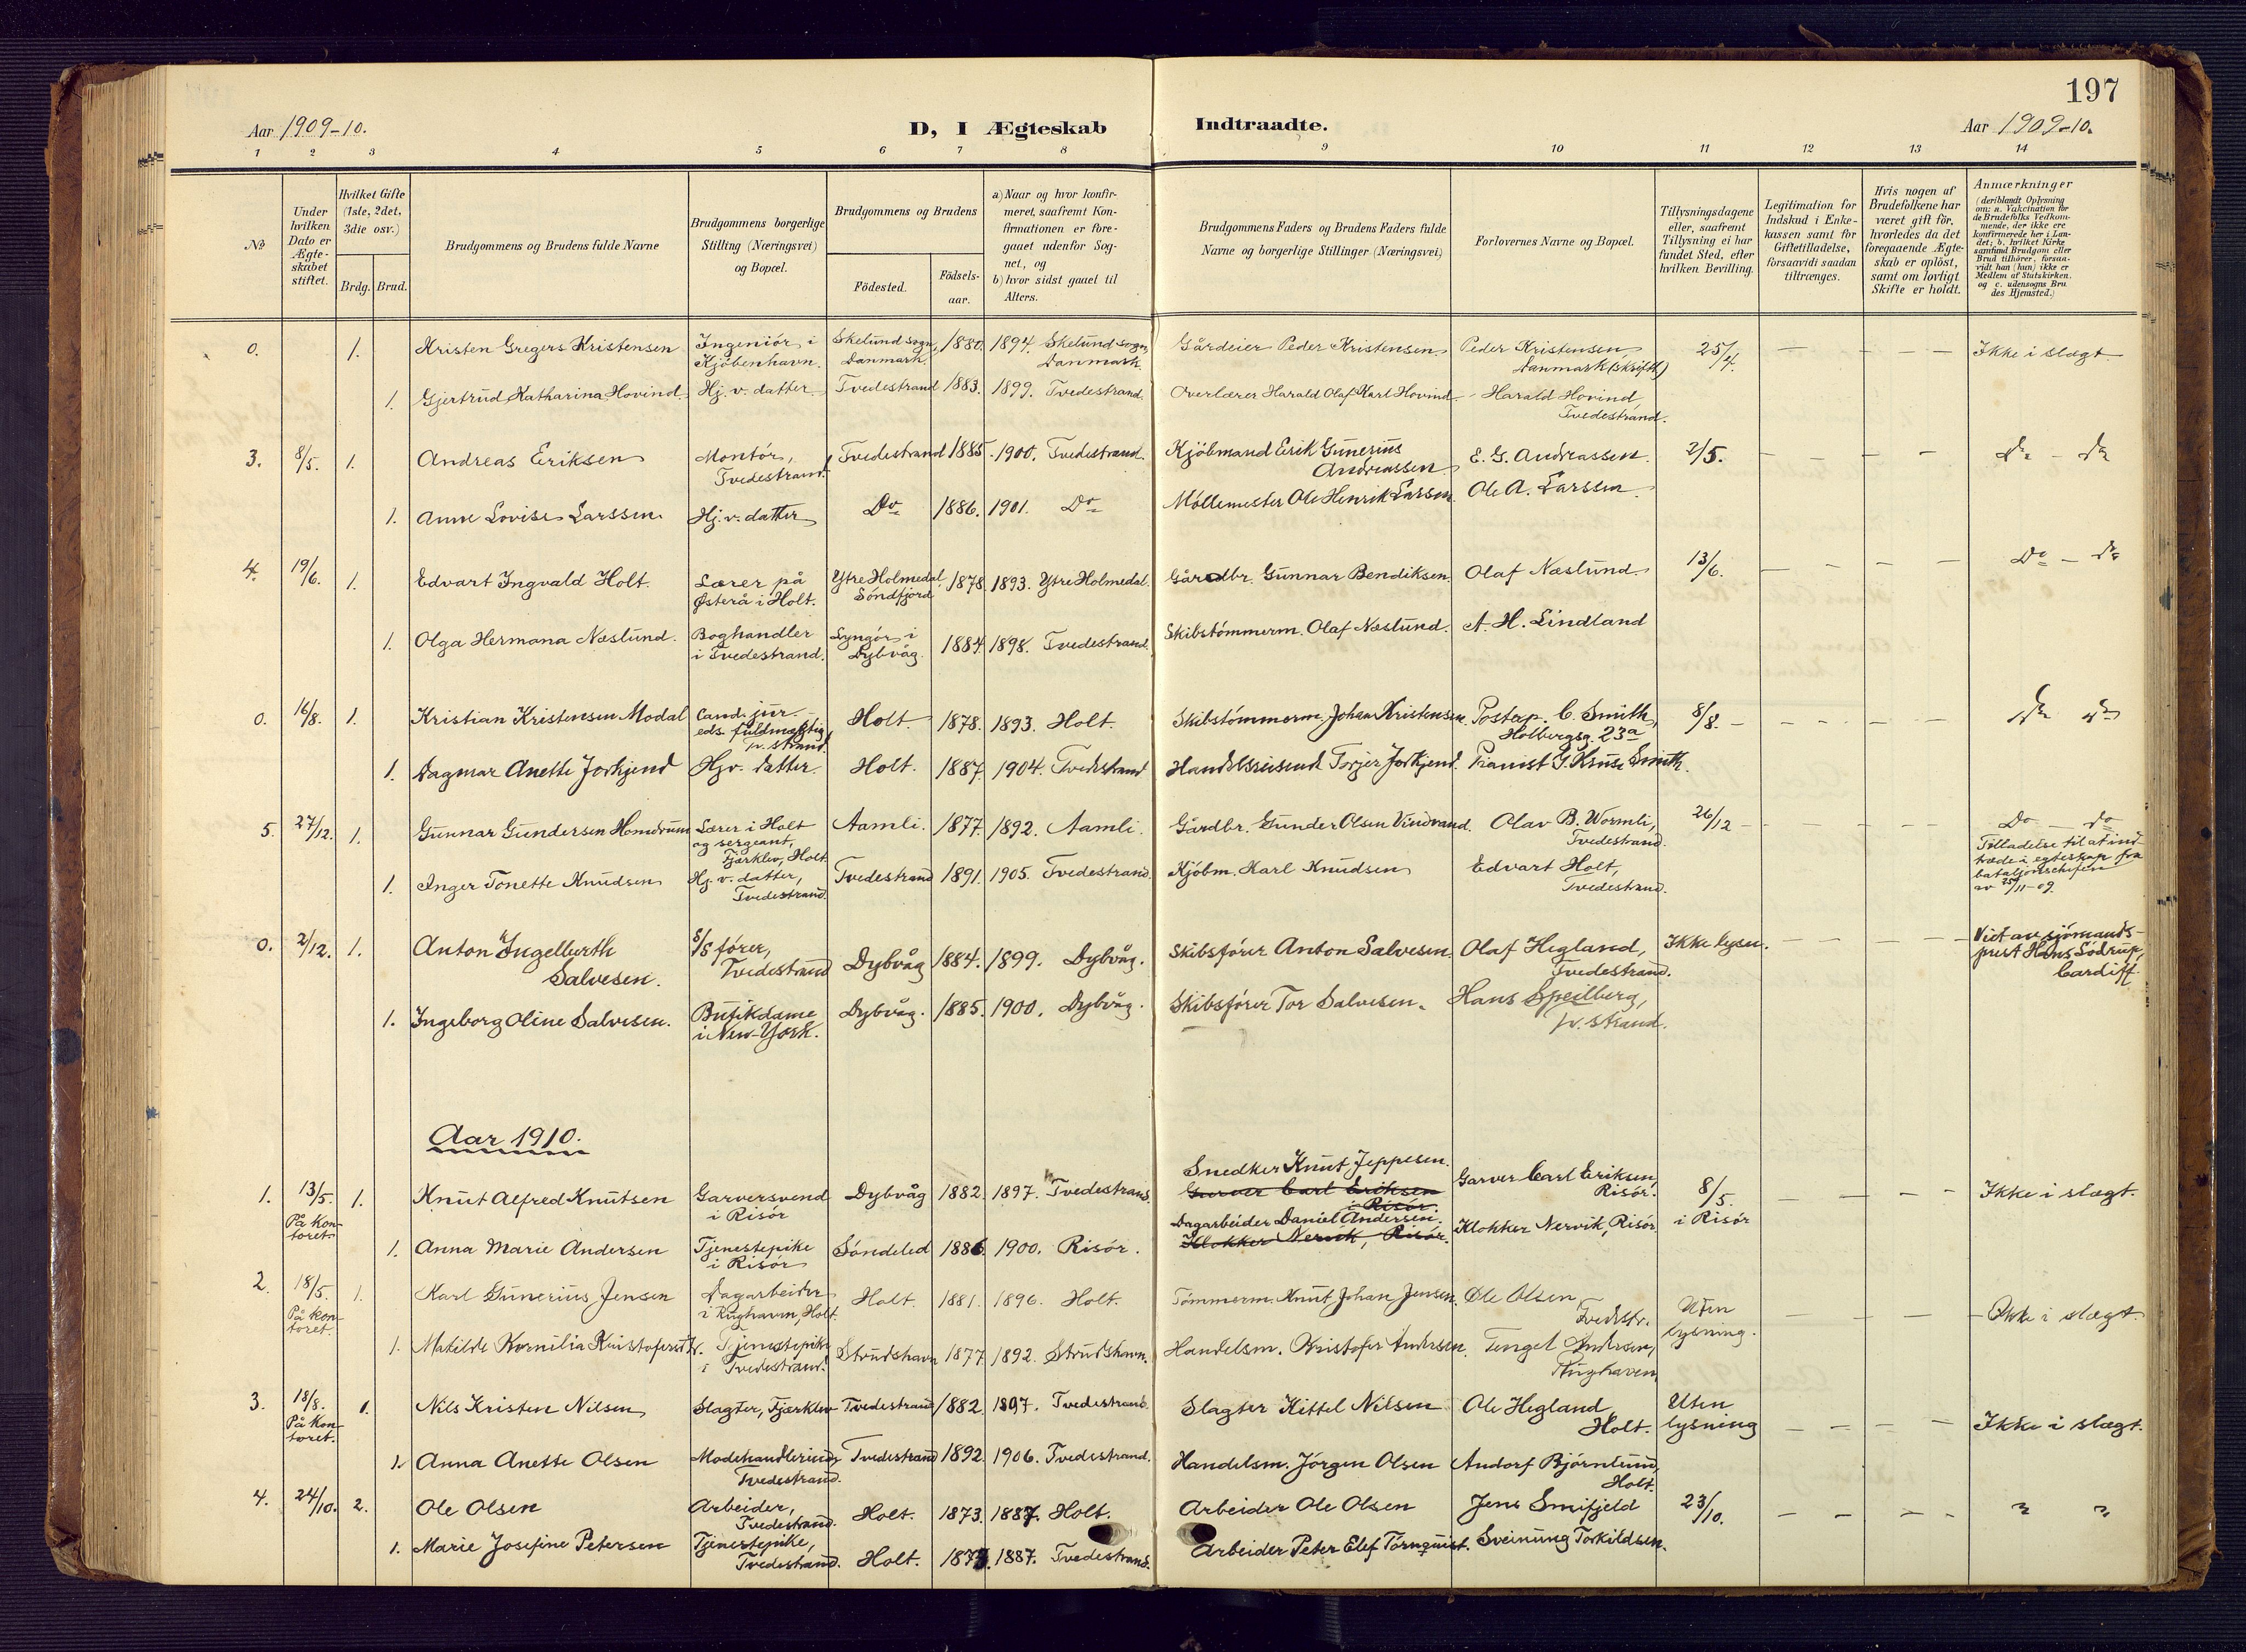 197
Aar 1909-10.
D, I Ægteskab Indtraadte.
Aar 1909-10.
1 2 3 4 5 6 7 8 9 10 11 12 13 14
№
Under hvilken Dato er Ægteskabet stiftet.
Hvilket Gifte (1ste, 2det, 3die osv.)
Brdg. Brud.
Brudgommens og Brudens fulde Navne
Brudgommens borgerlige Stilling (Næringsvei) og Bopæl.
Brudgommens og Brudens
Fødested.
Födsels-aar.
a) Naar og hvor konfirmeret, saafremt Konfirmationen er foregaaet udenfor Sognet, og
b) hvor sidst gaaet til Alters.
Brudgommens Faders og Brudens Faders fulde Navne og borgerlige Stillinger (Næringsvei)
Forlovernes Navne og Bopæl.
Tillysningsdagene eller, saafremt Tillysning ei har fundet Sted, efter hvilken Bevilling.
Legitimation for Indskud i Enkekassen samt for Giftetilladelse, forsaavidt saadan tiltrænges.
Hvis nogen af Brudefolkene har været gift før, hvorledes da det foregaaende Ægteskab er opløst, samt om lovligt Skifte er holdt.
Anmærkninger
(deriblandt Oplysning om: a. Vakcination for de Brudefolks Vedkommende, der ikke ere konfirmerede her i Landet; b. hvilket Kirkesamfund Brudgom eller Brud tilhører, forsaavidt han (hun) ikke er Medlem af Statskirken. og c. udensogns Brudes Hjemsted.)
0. 1. Kristen Gregers Kristensen Ingeniör i Kjöbenhavn. Skelund sogn, Danmark. 1880. 1894. Skelund sogn, Danmark. Gårdeier Peder Kristensen Peder Kristensen Danmark (skriftl.) 25/4. — — — — Ikke i slægt
1. Gjertrud Katharina Hovind. Hj. v. datter. Tvedestrand 1883. 1899. Tvedestrand. Overlærer Harald Olaf Karl Hovind. Harald Hovind, Tvedestrand.
3. 8/5. 1. Andreas Eriksen Montör, Tvedestrand. Tvedestrand 1885. 1900. Tvedestrand. Kjöbmand Erik Gunerius Andreassen E. G. Andreassen. 2/5. — — — — Do — Do
1. Anne Lovise Larssen Hj. v. datter Do 1886. 1901. Do Möllemester Ole Henrik Larssen. Ole A. Larssen.
4. 19/6. 1. Edvart Ingvald Holt. Lærer på Østerå i Holt. Ytre Holmedal, Söndfjord 1878. 1893. Ytre Holmedal. Gårdbr. Gunnar Bendiksen. Olaf Næslund 13/6. — — — — Do — Do
1. Olga Hermana Næslund. Boghandler i Tvedestrand. Lyngör i Dybvåg. 1884. 1898. Tvedestrand. Skibstömmerm. Olaf Næslund. A. H. Lindland
0. 16/8. 1. Kristian Kristensen Modal Cand. jur. eds. fuldmægtig Tv. strand. Holt 1878. 1893. Holt. Skibstömmerm. Johan Kristensen. Postexp. C. Smith, Holbergsg. 23a 8/8. — — — — Do Do
1. Dagmar Anette Jorkjend Hjv. datter. Holt. 1887. 1904. Tvedestrand Handelsreisend Torjer Jorkjend. Pianist G. Kruse Smith.
5. 27/12. 1. Gunnar Gundersen Homdrum Lærer i Holt og sergeant, Fjærklev, Holt. Aamli. 1877. 1892. Aamli. Gårdbr. Gunder Olsen Vindvand. Olav B. Wormli, Tvedestrand. 26/12 — — — — Do — Do
Tilladelse til at indtræde i egteskap fra bataljonschefen av 25/11-09.
1. Inger Tonette Knudsen Hj. v. datter, Tvedestrand. Tvedestrand 1891. 1905. Tvedestrand. Kjöbm. Karl Knudsen Edvart Holt, Tvedestrand.
0. 2/12. 1. Anton Ingelbrth Salvesen. S/S förer, Tvedestrand Dybvåg 1884. 1899. Dybvåg. Skibsförer Anton Salvesen. Olaf Hegland, Tvedestrand. Ikke lysn. — — — — Viet av sjömandsprest Hans Södrup, Cardiff.
1. Ingeborg Oline Salvesen. Butikdame i New-York. Dybvåg. 1885. 1900. Dybvåg. Skibsförer Tor Salvesen. Hans Speilberg, Tv. strand.
Aar 1910.
1. 13/5. På kontoret 1. Knut Alfred Knutsen Garversvend i Risör Dybvåg 1882. 1897. Tvedestrand. Snedker Knut Jeppesen. Garver Carl Eriksen i Risör. Garver Carl Eriksen, Risör. 8/5. i Risör — — — — Ikke i slægt.
1. Anna Marie Andersen Tjenestepike i Risör Söndeled 1886. 1900. Risör. Dagarbeider Daniel Andersen. Klokker Nervik, Risör. Klokker Nervik, Risör.
2. 18/5. På kontoret. 1. Karl Gunerius Jensen Dagarbeider i Rughaven, Holt. Holt. 1881. 1896. Holt. Tömmerm. Knut Johan Jensen. Ole Olsen, Tvedestr. Uten lysning. — — — — Ikke i slægt.
1. Matilde Kornilia Kristofersdtr. Tjenestepike i Tvedestrand. Strudshavn 1877. 1892. Strudshavn. Handelsm. Kristofer Andersen. Tengel Andersen, Rughaven
3. 18/8. På kontoret. 1. Nils Kristen Nilsen Slagter, Fjærklev Tvedestrand 1882. 1897. Tvedestrand. Slagter Kittel Nilsen Ole Hegland, Holt. Uten lysning — — — — Ikke i slægt.
1. Anna Anette Olsen Modehandlerinde Tvedestrand. Tvedestrand 1892. 1906. Tvedestrand. Handelsm. Jörgen Olsen Andorf Björnlund, Holt.
4. 24/10. 2. Ole Olsen Arbeider, Tvedestrand. Holt. 1873. 1887. Holt. Arbeider Ole Olsen Jens Smifjeld 23/10. — — — — " "
1. Marie Josefine Petersen Tjenestepike, Tvedestrand. Holt. 1887. Tvedestrand. Arbeider Peter Elef Törnquist. Sveinung Torkildsen.